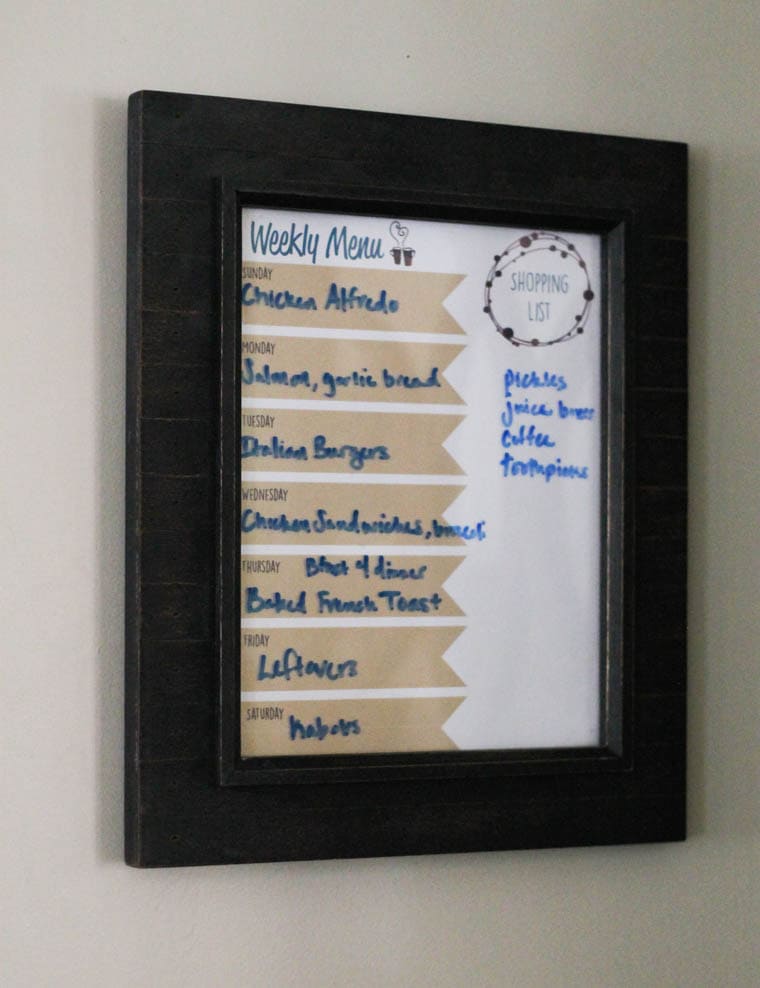 Weekly Menu
SUNDAY
Chicken Alfredo
MONDAY
Salmon, garlic bread
TUESDAY
Italian Burgers
WEDNESDAY
Chicken Sandwiches, brocoli
THURSDAY Bfast 4 dinner
Baked French Toast
FRIDAY
Leftovers
SATURDAY
Kabobs
SHOPPING
LIST
pickles
juice boxes
coffee
toothpicks